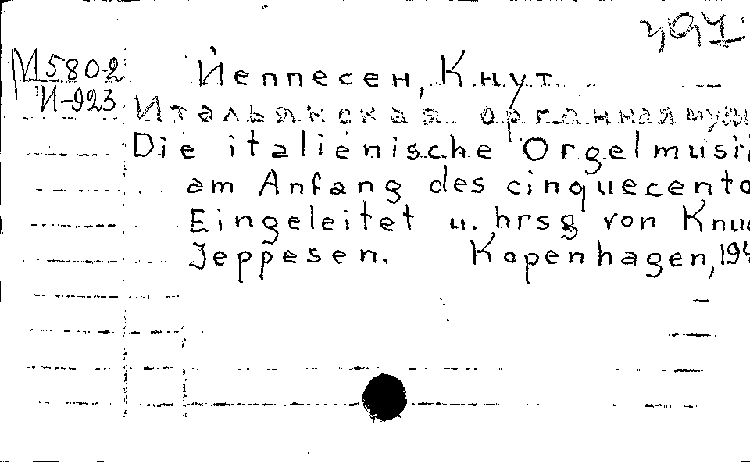 397
М5802
И-923
Йеппесен, Кнут.
Итальянская органная музы
Die italienische Orgelmusi
am Anfang des cinquecento
Eingeleitet u. hrsg von Knu
Jeppesen. Kopenhagen, 194